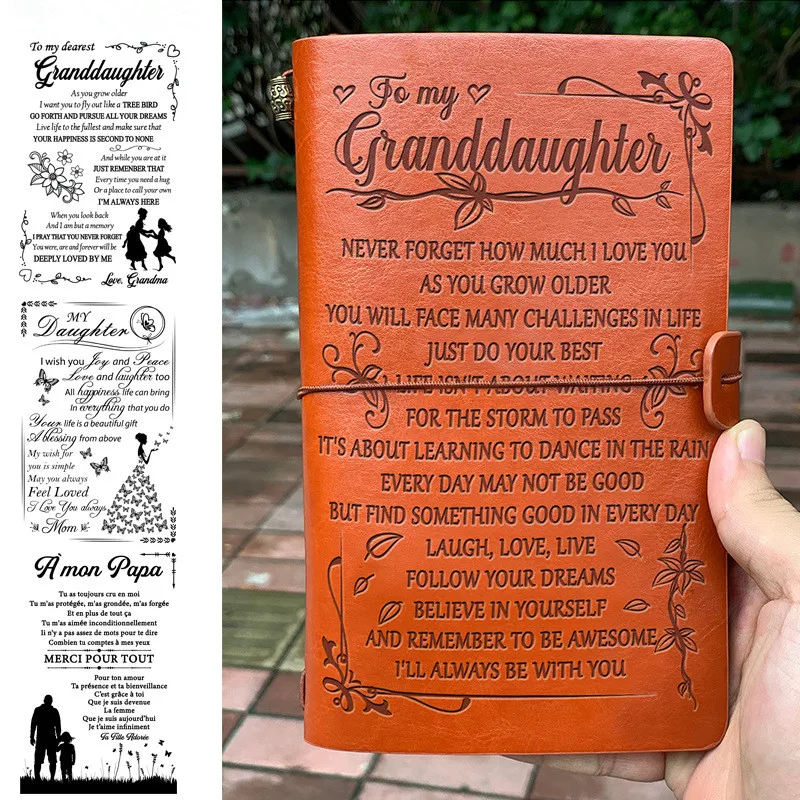 To my dearest
Granddaughter
As you grow older
I want you to fly out like a TREE BIRD
GO FORTH AND PURSUE ALL YOUR DREAMS
Live life to the fullest and make sure that
YOUR HAPPINESS IS SECOND TO NONE
And while you are at it
JUST REMENBER THAT
Every time you need a hug
Or a place to call your own
I'M ALWAYS HERE
When you look back
And I am but a memory
I PRAY THAT YOU NEVER FORGET
You were, are and forever will be
DEEPLY LOVED BY ME
Love, Grandma
MY
Daughter
I wish you Joy and Peace
Love and laughter too
All happiness life can bring
In everything that you do
Your life is a beautiful gift
A blessing from above
My wish for
you is simple
May you always
Feel Loved
I Love You always
Mom
À mon Papa
Tu as toujours cru en moi
Tu m'as protégée, m'as grondée, m'as forgée
Et en plus de tout ça
Tu m'as aimée inconditionnellement
Il n'y a pas assez de mots pour te dire
Combien tu comptes à mes yeux
MERCI POUR TOUT
Pour ton amour
Ta présence et ta bienveillance
C'est grâce à toi
Que je suis devenue
La femme
Que je suis aujourd'hui
Je t'aime infiniment
Ta Fille Adorée
To my
Granddaughter
NEVER FORGET HOW MUCH I LOVE YOU
AS YOU GROW OLDER
YOU WILL FACE MANY CHALLENGES IN LIFE
JUST DO YOUR BEST
LIFE ISN'T ABOUT WAITING
FOR THE STORM TO PASS
IT'S ABOUT LEARNING TO DANCE IN THE RAIN
EVERY DAY MAY NOT BE GOOD
BUT FIND SOMETHING GOOD IN EVERY DAY
LAUGH, LOVE, LIVE
FOLLOW YOUR DREAMS
BELIEVE IN YOURSELF
AND REMEMBER TO BE AWESOME
I'LL ALWAYS BE WITH YOU